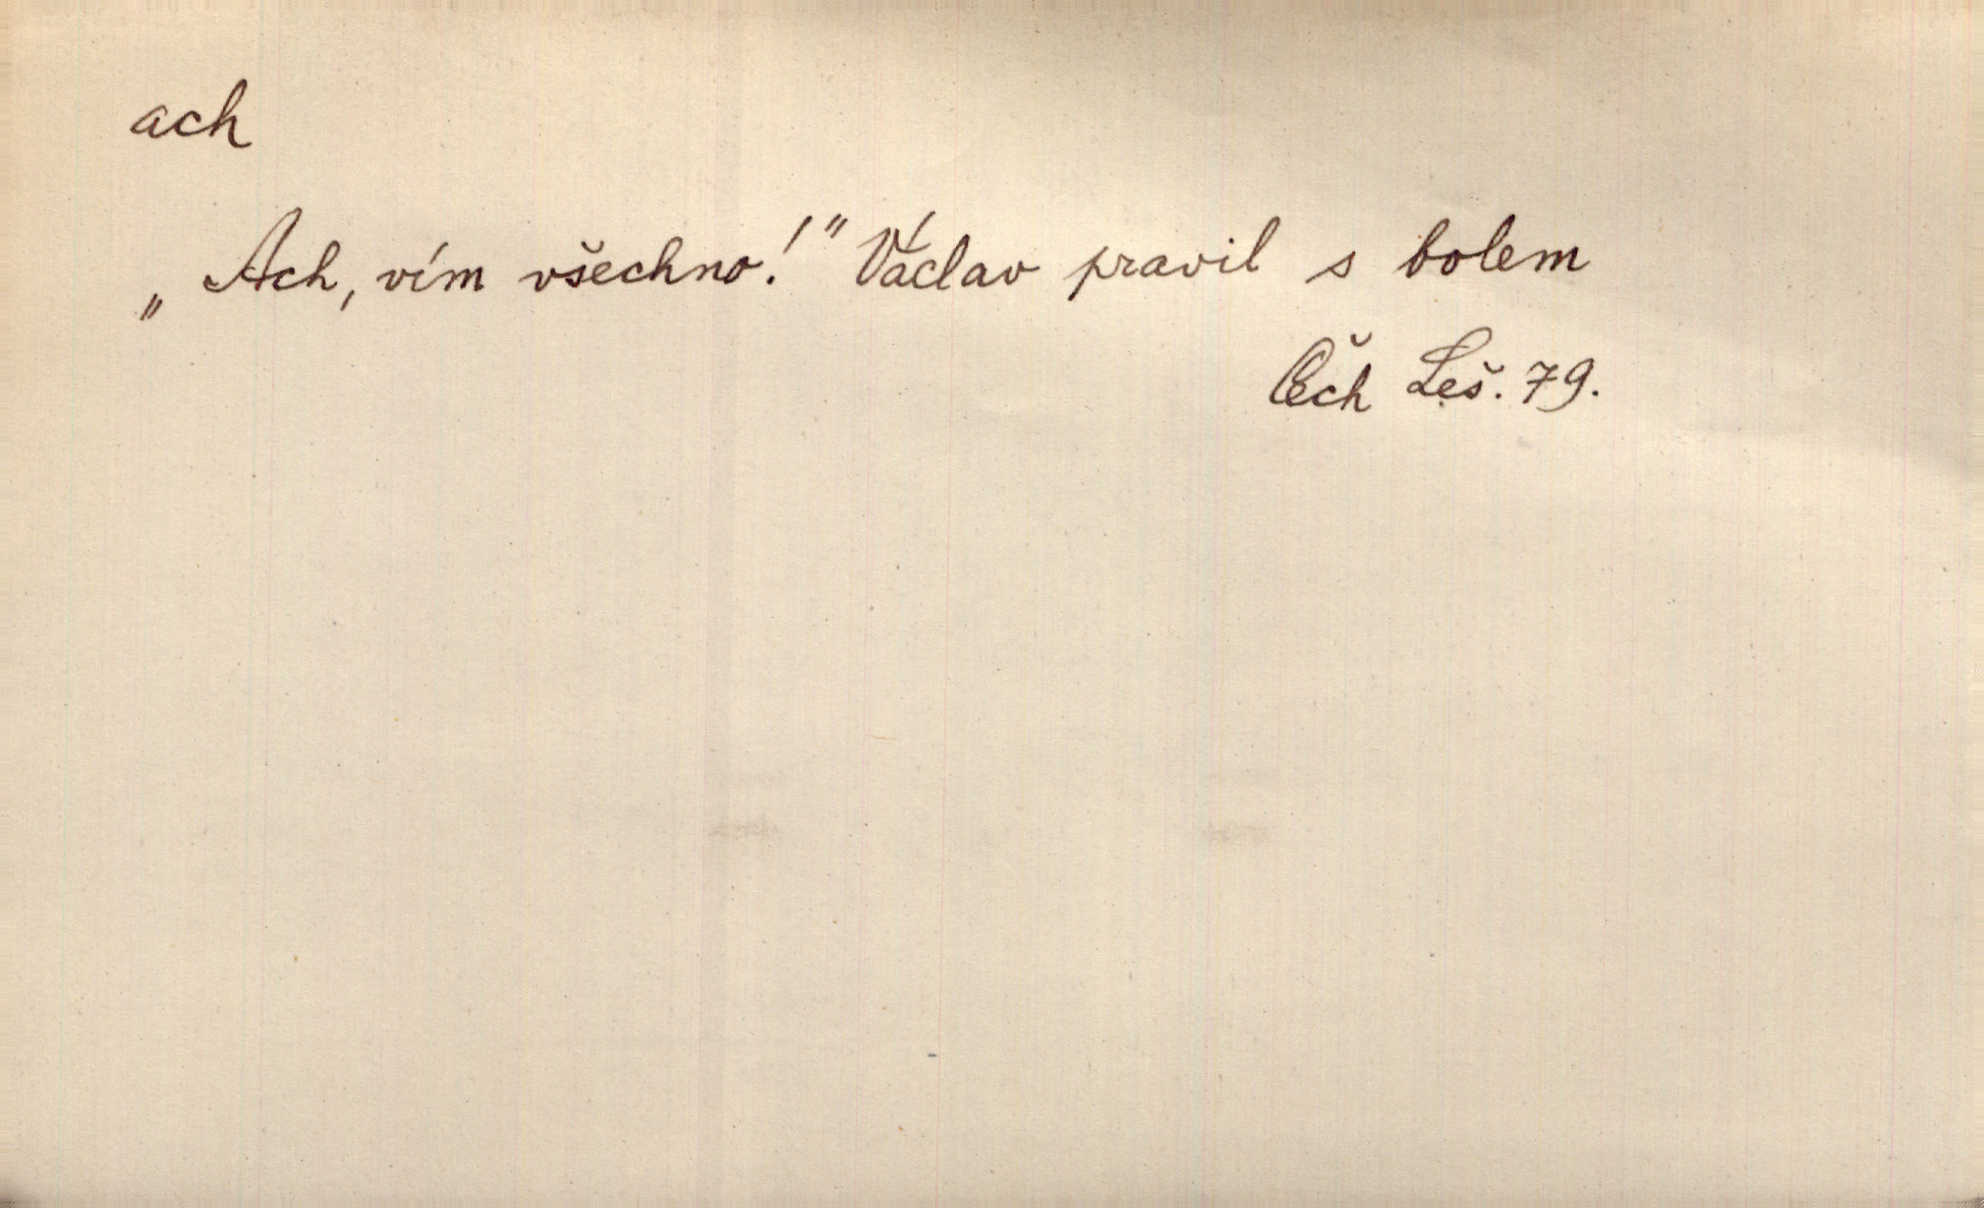 ach
„Ach, vím všechno!" Václav pravil s bolem
Čech Leš. 79.